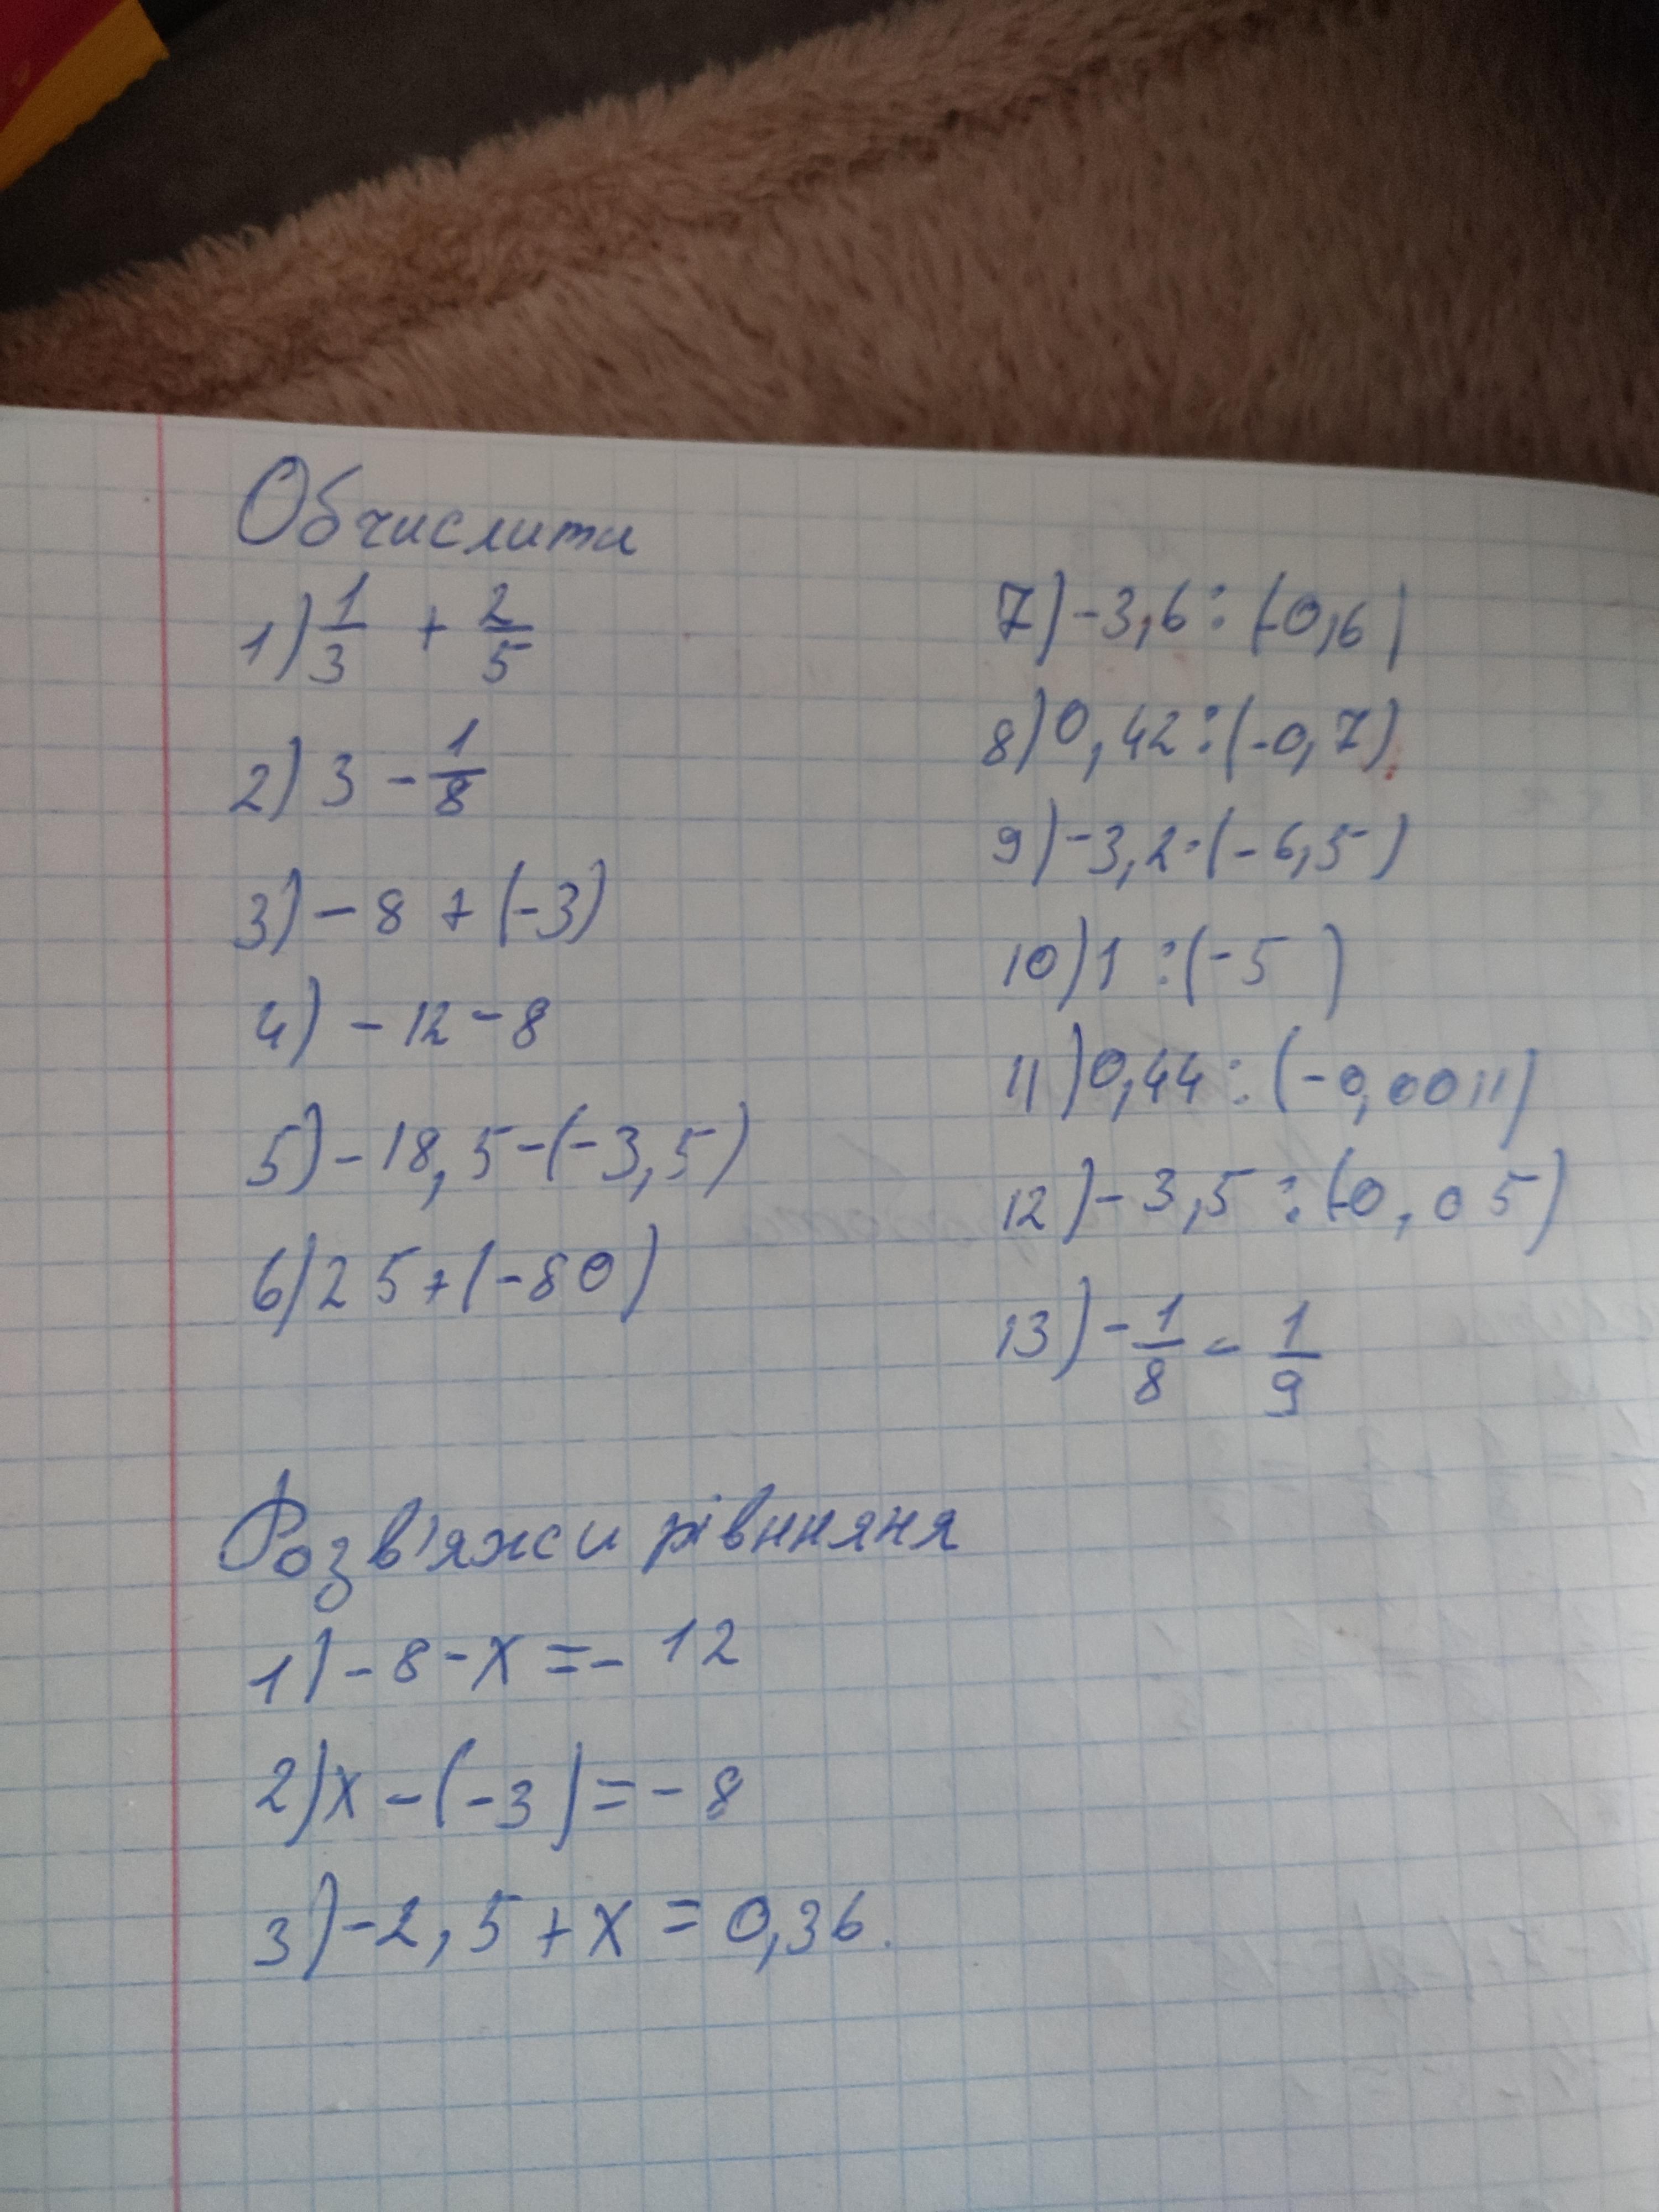 Обчислити
1) 1/3 + 2/5
2) 3 - 1/8
3) - 8 + (-3)
4) - 12 - 8
5) - 18,5 - (-3,5)
6) 25 + (-80)
7) -3,6 : (-0,6)
8) 0,42 : (-0,7)
9) -3,2 · (-6,5)
10) 1 : (-5)
11) 0,44 : (-0,0011)
12) - 3,5 : (-0,05)
13) - 1/8 - 1/9
Розв'яжси рівнняня
1) - 8 - x = - 12
2) x - (-3) = - 8
3) -2,5 + x = 0,36.